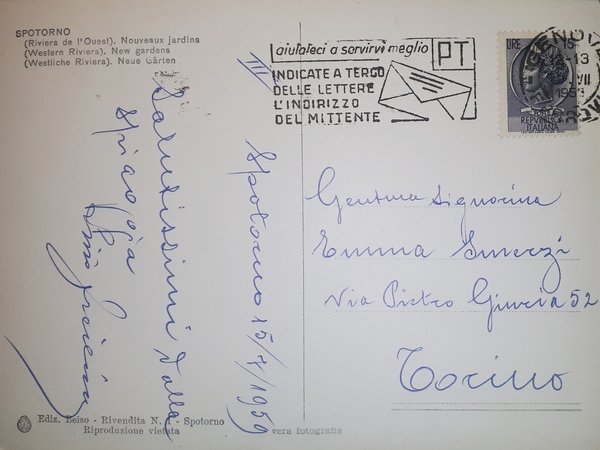 SPOTORNO
(Riviera de l'Ouest). Nouveaux jardins
(Western Riviera). New gardens
(Westliche Riviera). Neue Gärten
aiutateci a servirvi meglio
PT
INDICATE A TERGO
DELLE LETTERE
L'INDIRIZZO
DEL MITTENTE
LIRE 15
REPVBBLICA
ITALIANA
GENOVA
III
Spotorno 15/7/1959
Salutissimi dalla
spiaggia
Signorina
Emma
Via Pietro Giuria 52
Torino
Ediz. Beiso - Rivendita N. 1 - Spotorno
Riproduzione vietata
vera fotografia